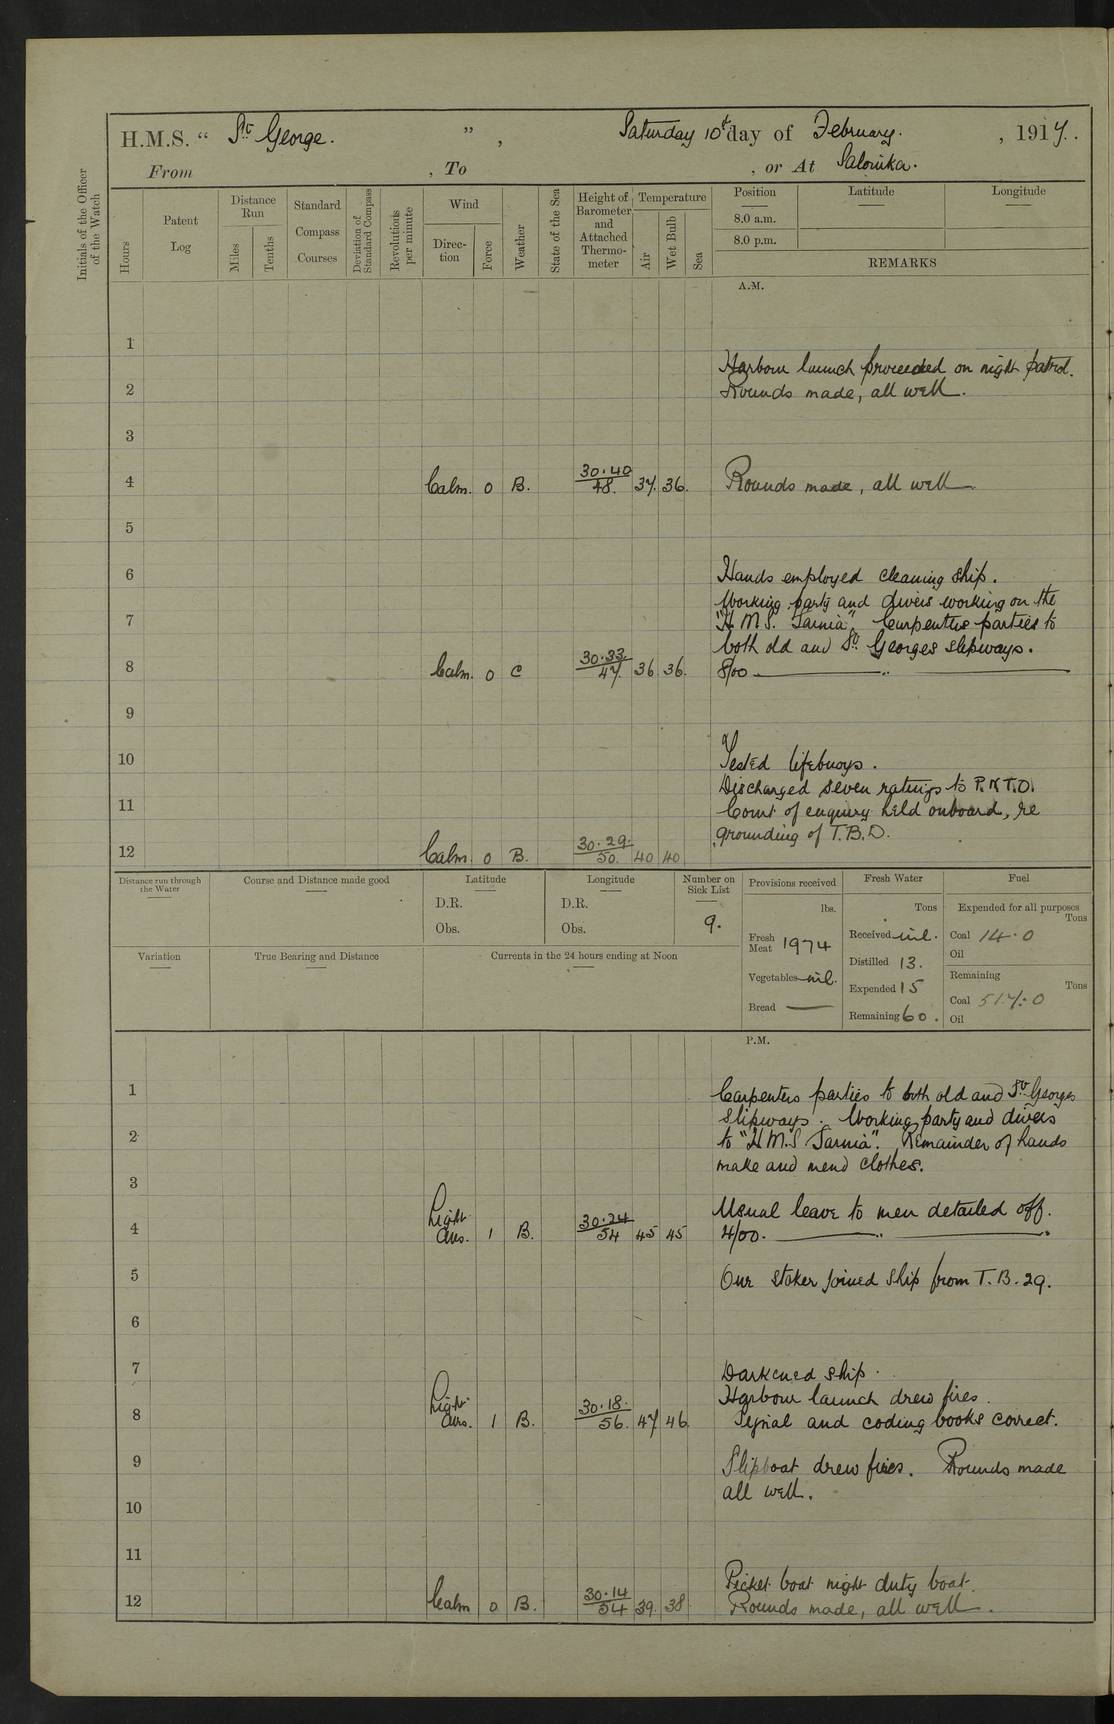 H.M.S. “ St George. ” , Saturday 10th day of February. , 1917.
From , To , or At Salonika.
Initials of the Officer of the Watch
Hours
Patent Log
Distance Run
Miles
Tenths
Standard Compass Courses
Deviation of Standard Compass
Revolutions per minute
Wind
Direction
Force
Weather
State of the Sea
Height of Barometer and Attached Thermometer
Temperature
Air
Wet Bulb
Sea
Position Latitude Longitude
8.0 a.m.
8.0 p.m.
REMARKS
A.M.
1
Harbour launch proceeded on night patrol.
2 Rounds made, all well.
3
4 Calm. 0 B. 30.40 48. 37. 36. Rounds made, all well
5
6 Hands employed cleaning ship.
Working party and divers working on the
7 "H.M.S. Sarnia". Carpenters parties to
both old and St Georges slipways.
8 Calm. 0 C 30.33. 47. 36 36. 8/00 "
9
10 Tested lifebuoys.
Discharged seven ratings to P.N.T.O.
11 Court of enquiry held onboard, re
grounding of T.B.D.
12 Calm. 0 B. 30.29. 50. 40 40
Distance run through the Water
Course and Distance made good
Latitude
D.R.
Obs.
Longitude
D.R.
Obs.
Number on Sick List
9.
Provisions received
lbs.
Fresh Meat 1974
Vegetables nil.
Bread —
Fresh Water
Tons
Received nil.
Distilled 13.
Expended 15
Remaining 60.
Fuel
Expended for all purposes
Tons
Coal 14.0
Oil
Remaining
Tons
Coal 517.0
Oil
Variation
True Bearing and Distance
Currents in the 24 hours ending at Noon
P.M.
1 Carpenters parties to both old and St Georges
slipways. Working party and divers
2 to "H.M.S Sarnia". Remainder of hands
make and mend clothes.
3
Usual leave to men detailed off.
4 Light airs. 1 B. 30.24 54 45 45 4/00. "
5 One stoker joined ship from T.B.29.
6
7 Darkened ship.
Harbour launch drew fires.
8 Light airs. 1 B. 30.18. 56. 47 46 Signal and coding books correct.
9 Slipboat drew fires. Rounds made
10 all well.
11
Picket boat night duty boat.
12 Calm 0 B. 30.14 54 39. 38 Rounds made, all well.